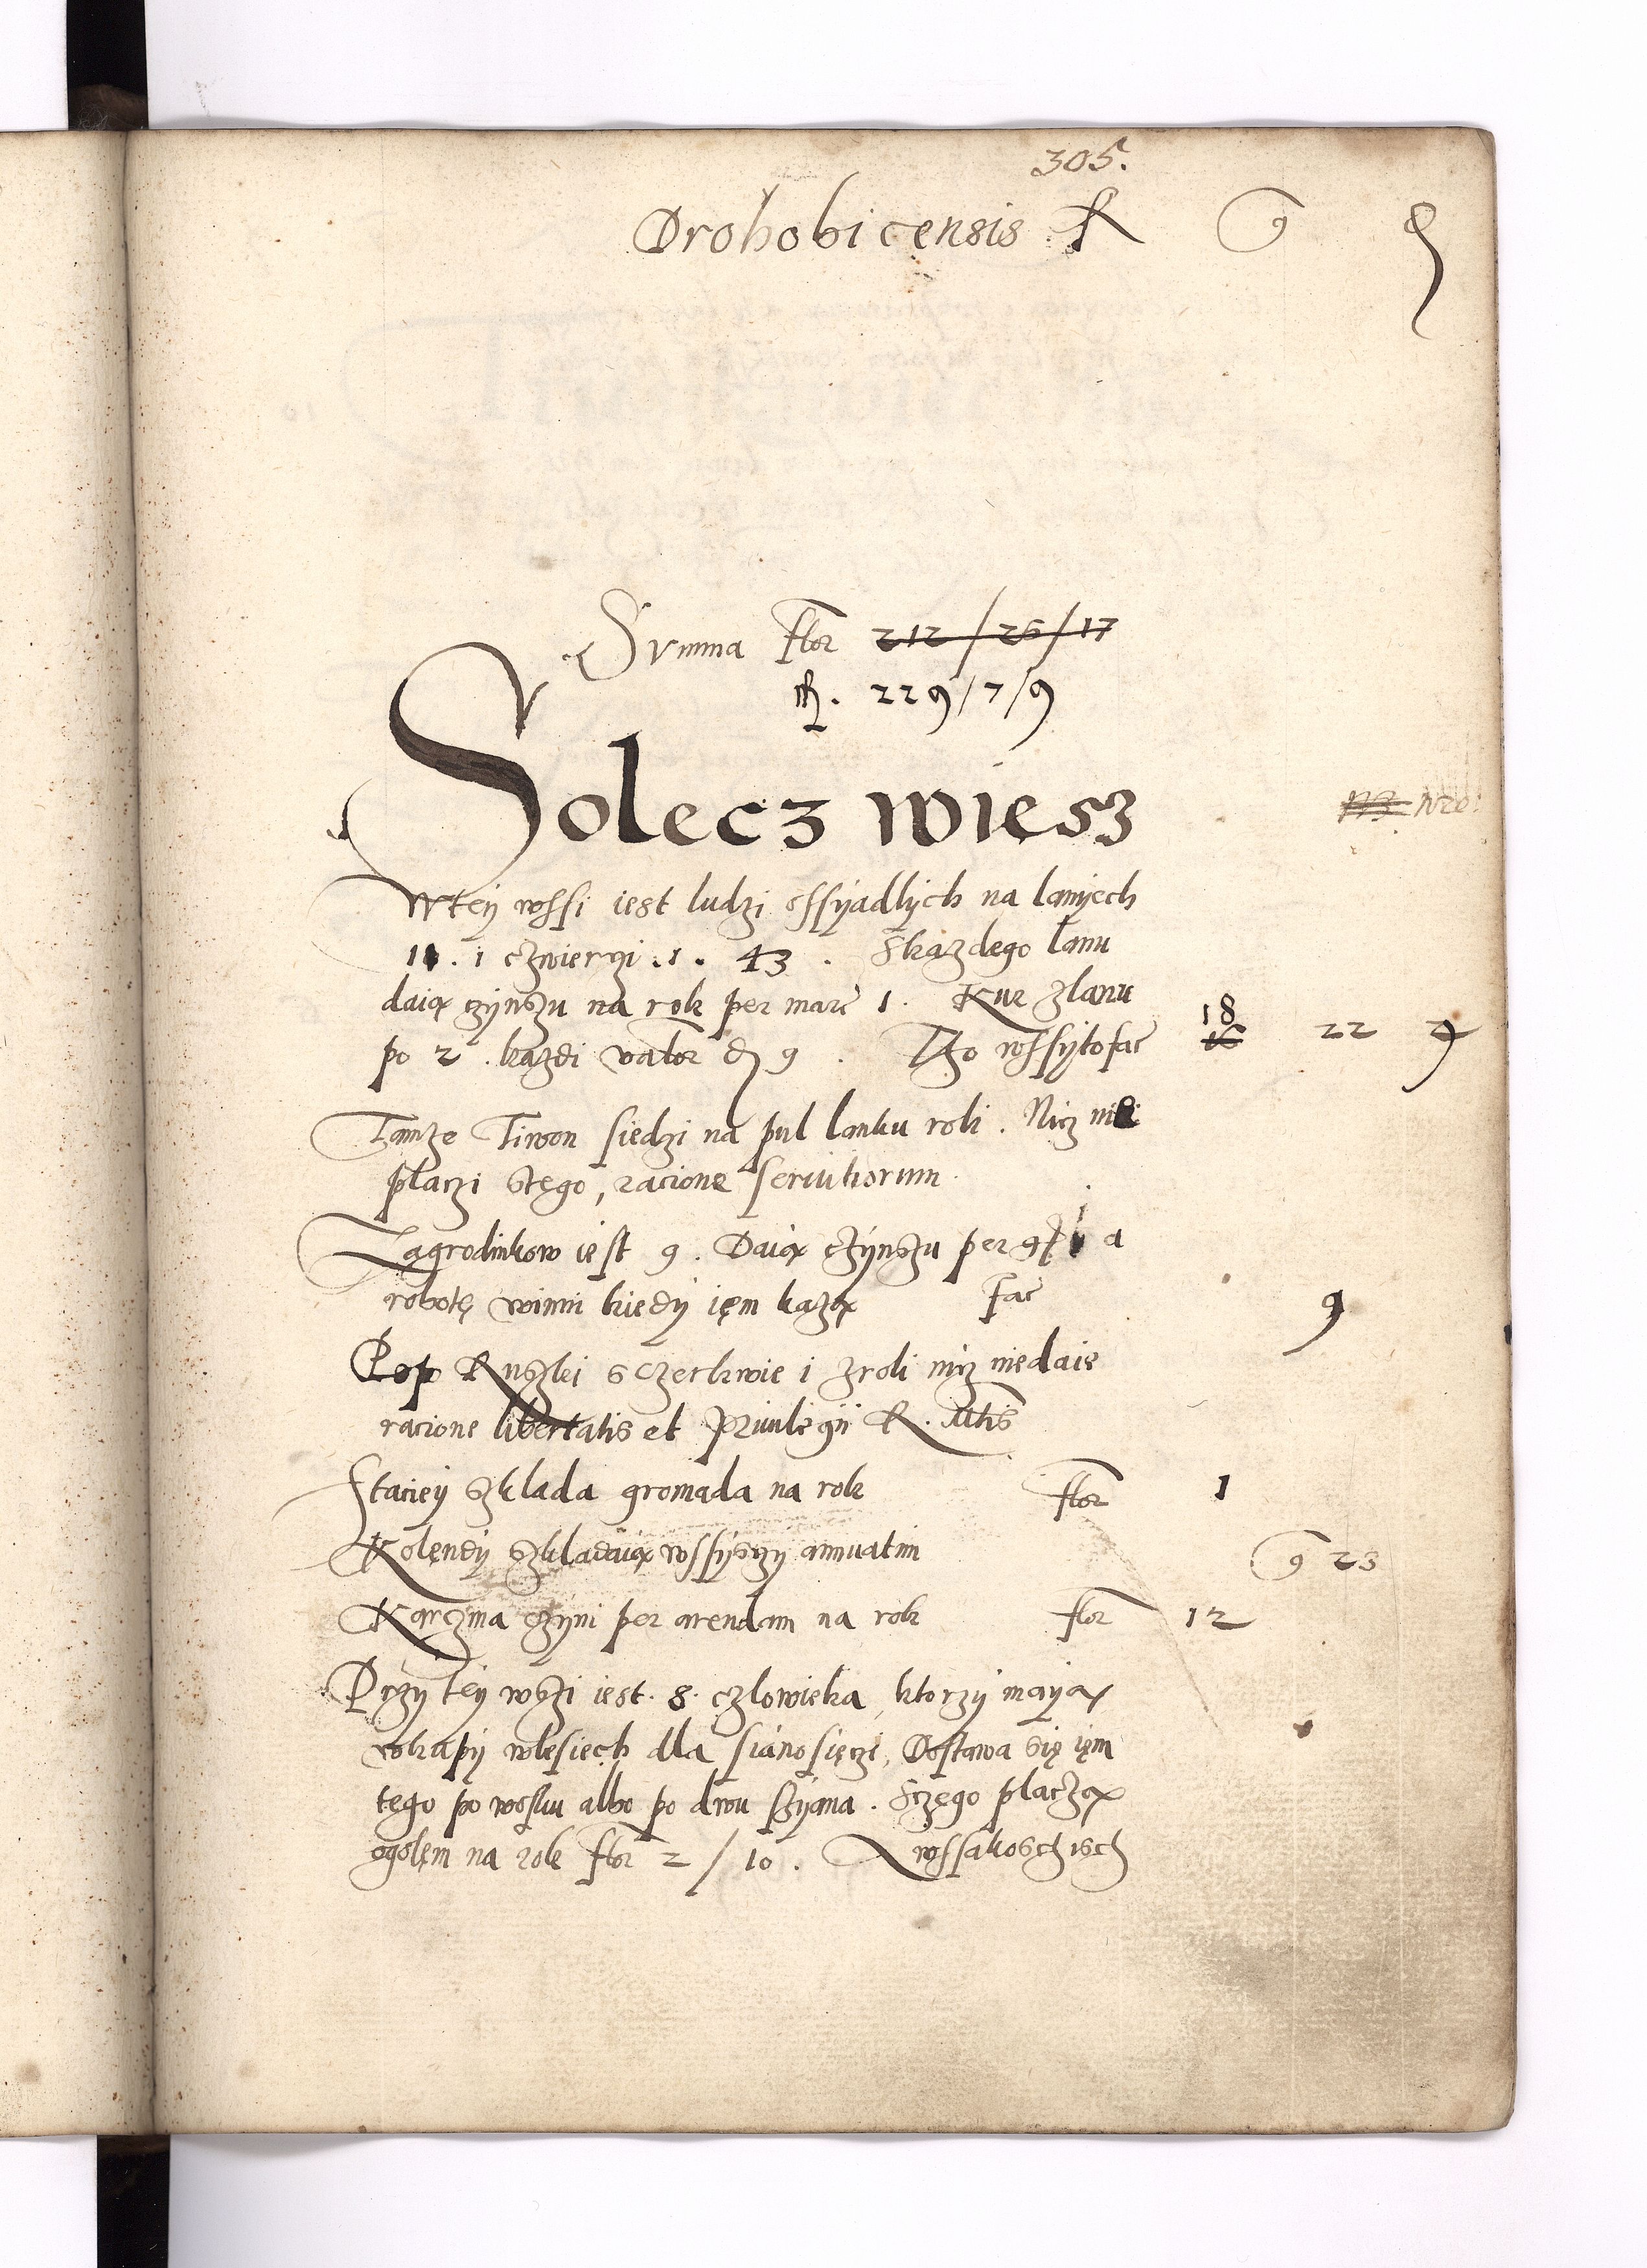 305.
Drohobicensis R g δ
Summa flor 212/26/17
fl. 229/7/9
Solecz wiesz
Wtey wssi iest ludzi ossyadlych na lanyech
11 . 1 czwierzi . 1 . 43 . Skazdego lanu
daią czynszu na rok per marc 1 . Kur zlanu
po 2 . kazdi valor δ 9 . Tho wssytko fac 18 22 9
Tamze Tiwon siedzi na pul lanku roli . Nicz nie
placzi stego, racione servitiorum
Zagrodnikow iest 9 . Daią czynszu per g 1 a
robotę winni kiedy ięm każą fac 9
Pop Ruszki s czerkwie i zroli nicz niedaie
racione libertatis et Privilegii R. Mtis
Staciey szklada gromada na rok flor 1
Kolędy szkladaią wssyszczy annuatim g 28
Karczma czyni per arendam na rok flor 12
Przy tey wszi iest . 8 . czlowieka, ktorzy mayą
wkapy wlesiech dla sianosięczi, Dostawa się ięm
tego po wosku albo po dwu szyana . Sczego placzą
ogolęm na rok flor 2/10 . Zwssakosch isch